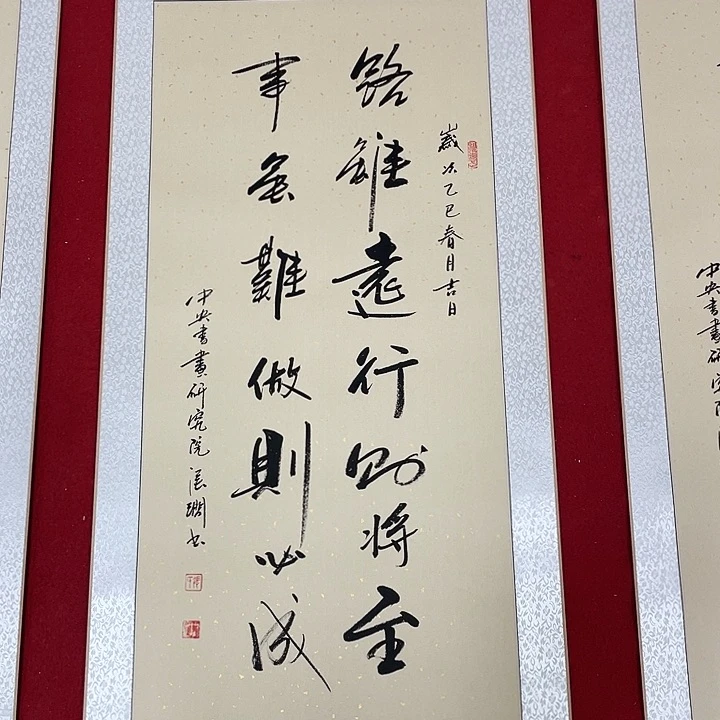 歲次乙巳春月吉日
路雖遠行则將至
事無難做則必成
中央書畫研究院
中央書畫研究院